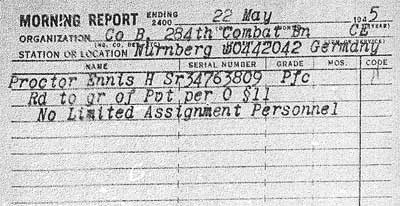 MORNING REPORT ENDING 2400 22 May 1945
ORGANIZATION Co B, 284th Combat Bn CE
STATION OR LOCATION Nurnberg WO442042 Germany
NAME SERIAL NUMBER GRADE MOS. CODE
Proctor Ennis H Sr 34763809 Pfc
Rd to gr of Pvt per O §11
No Limited Assignment Personnel